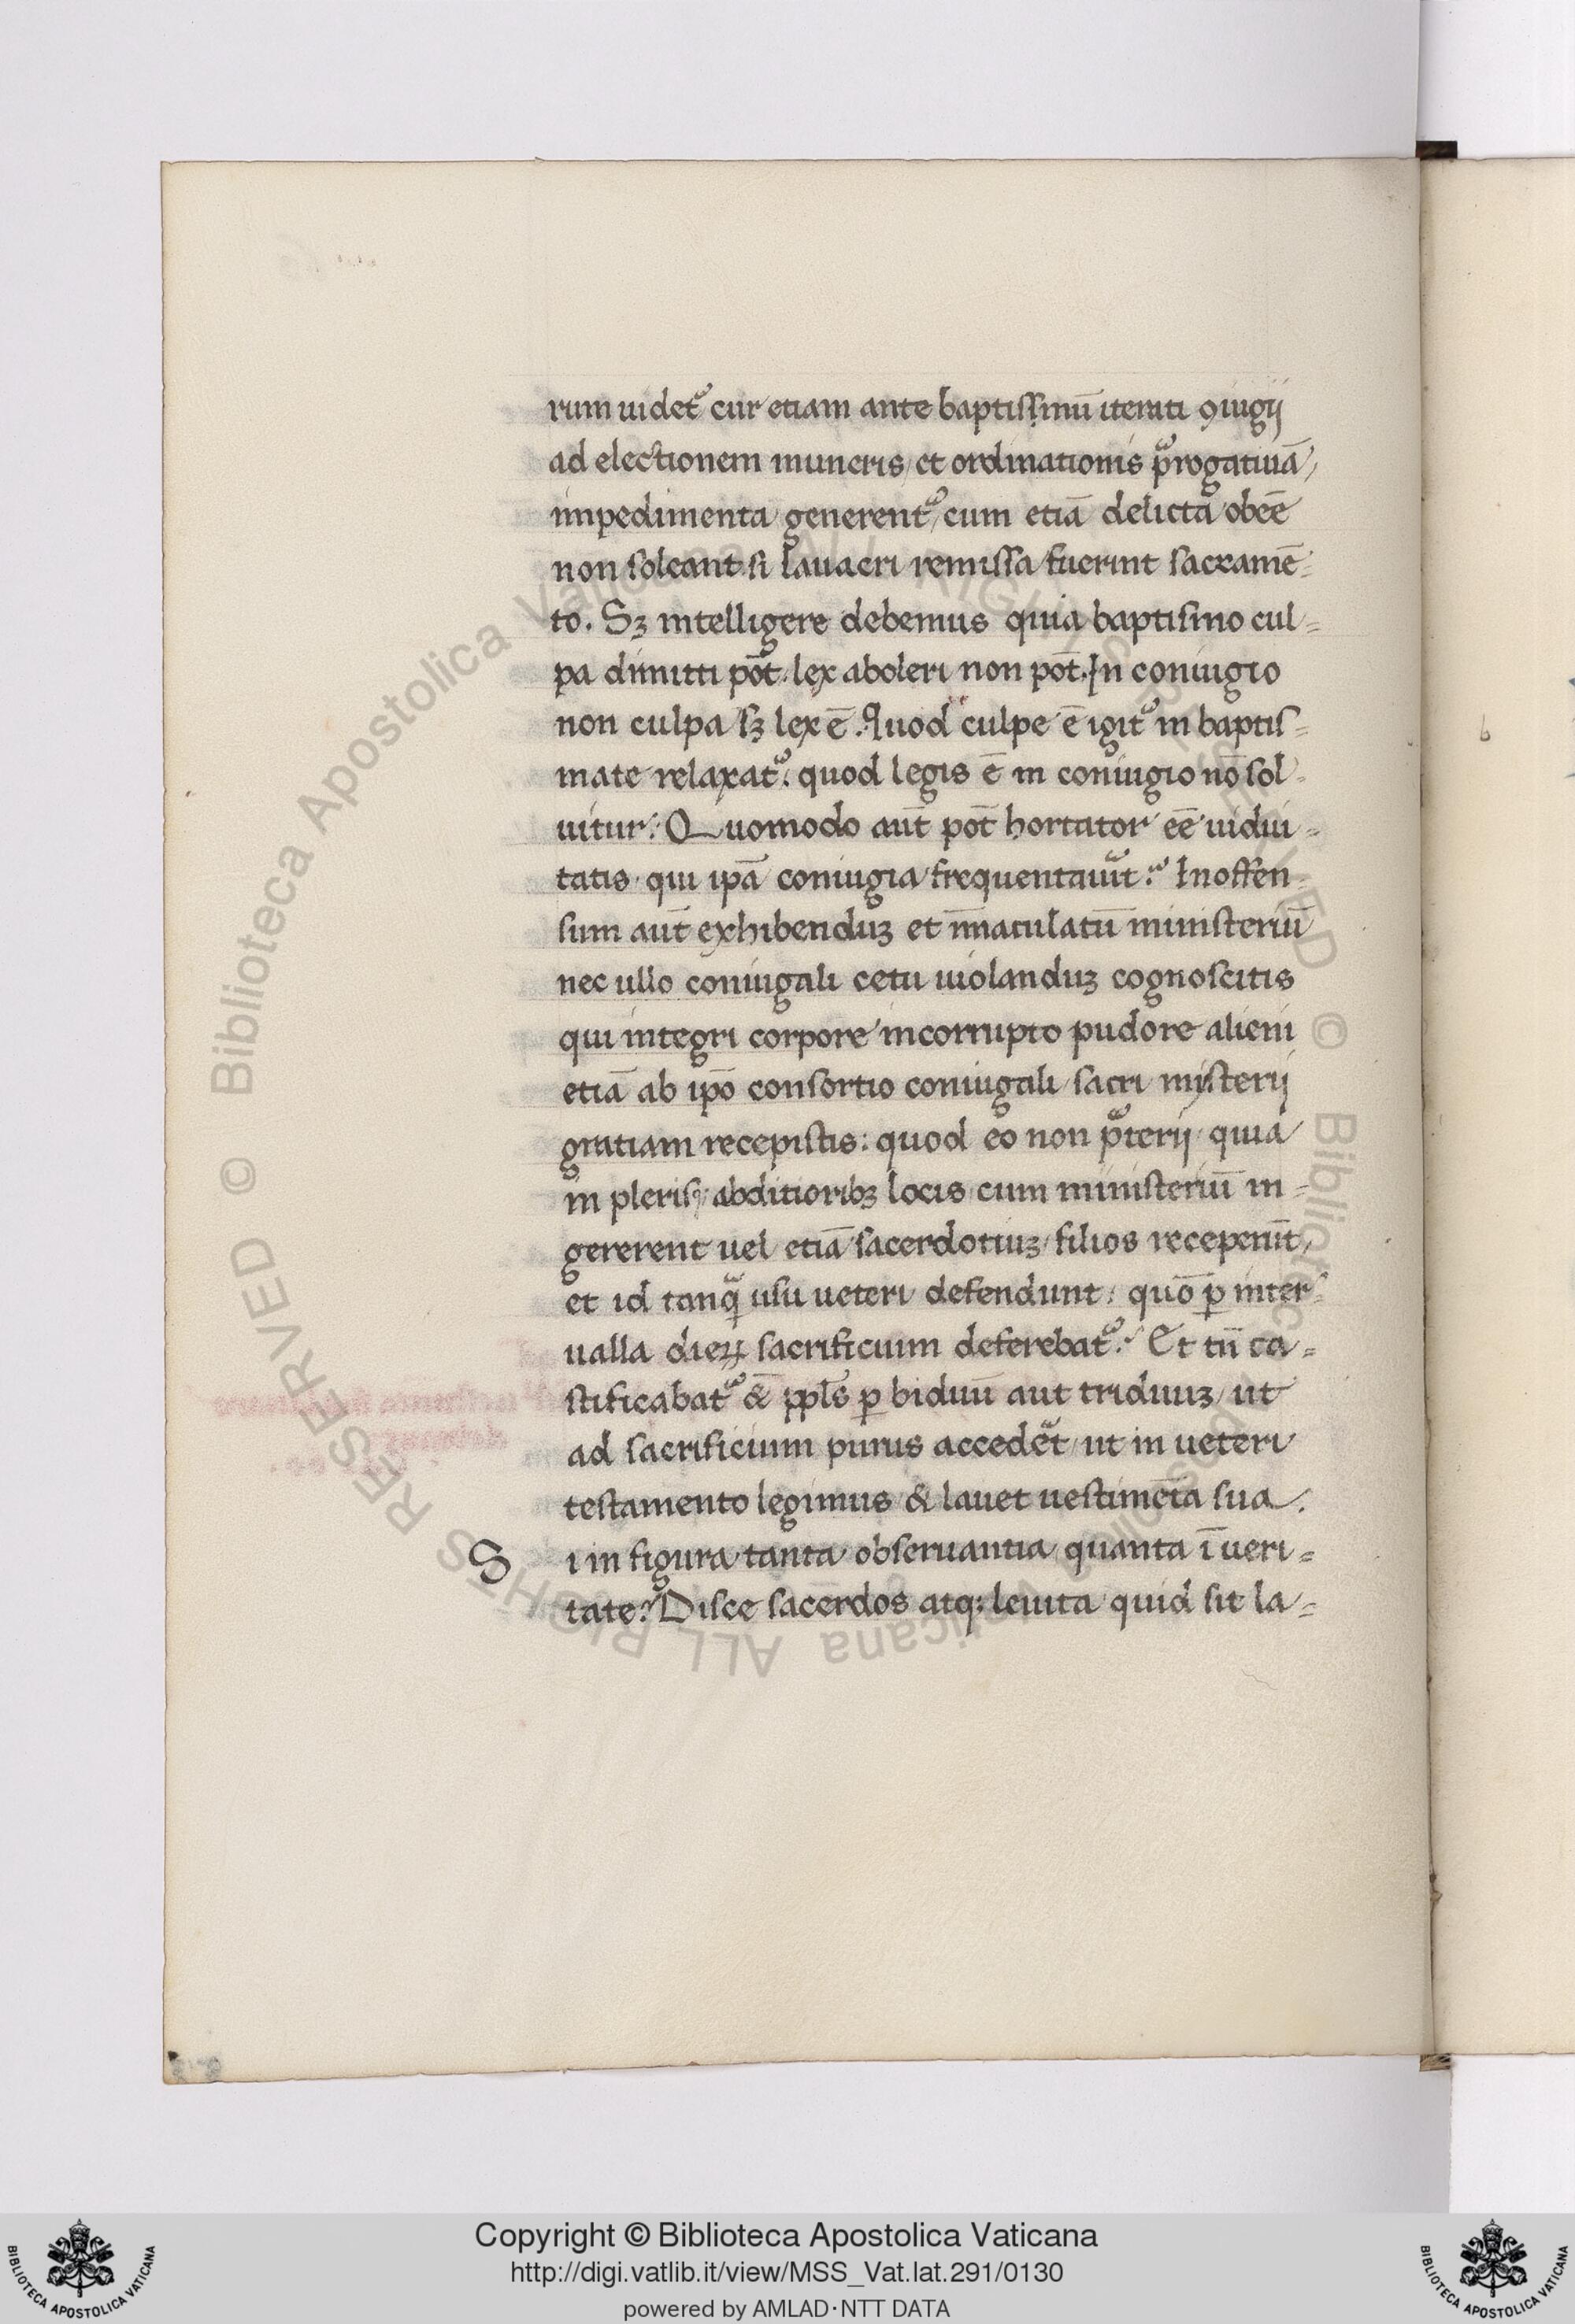 rum uidet᷑ cur etiam ante baptiſſmū iterati ꝯiugij
ad electionem muneris / et ordinationis p̃rogatiuā /
impedimenta generent᷑ / cum etiā delicta obeē
non ſoleant ſi lauacri remiſſa fuerint ſacramē-
to. Sꝫ intelligere debemus quia baptiſmo cul-
pa dimitti pōt. lex aboleri non pōt. In coniugio
non culpa ſꝫ lex ē. Quod culpe ē igit᷑ in baptiſ-
mate relaxat᷑. quod legis ē in coniugio nō ſol-
uitur. Quomodo aūt pōt hortator eē uidui-
tatis qui ipā coniugia frequentauit̃? Inoffen-
ſum aūt exhibenduꝫ et īmaculatū miniſteriū
nec ullo coniugali cetu uiolanduꝫ cognoſcitis
qui integri corpore incorrupto pudore alieni
etiā ab ipō conſortio coniugali / ſacri myſterii
gratiam recepiſtis: quod eo non p̃terij quia
in pleriſqꝫ abditioribꝫ locis cum miniſteriū in-
gererent uel etiā ſacerdotiuꝫ / filios receperūt /
et id tanq̃ uſu ueteri defendunt / quō ꝑ inter
ualla dieꝝ ſacrificium deferebat᷑. Et tn̄ ca-
ſtificabat᷑ & ppl̄s ꝑ biduū aut triduuꝫ / ut
ad ſacrificium purus accedet̃ ut in ueteri
teſtamento legimus & lauet ueſtimēta ſua.
Si in figura tanta obſeruantia quanta ī ueri-
tate? Diſce ſacerdos atqꝫ leuita quid ſit la-
b
© Biblioteca Apostolica Vaticana ALL RIGHTS RESERVED
© Biblioteca Apostolica Vaticana ALL RIGHTS RESERVED
Copyright © Biblioteca Apostolica Vaticana
http://digi.vatlib.it/view/MSS_Vat.lat.291/0130
powered by AMLAD·NTT DATA
BIBLIOTECA APOSTOLICA VATICANA
BIBLIOTECA APOSTOLICA VATICANA